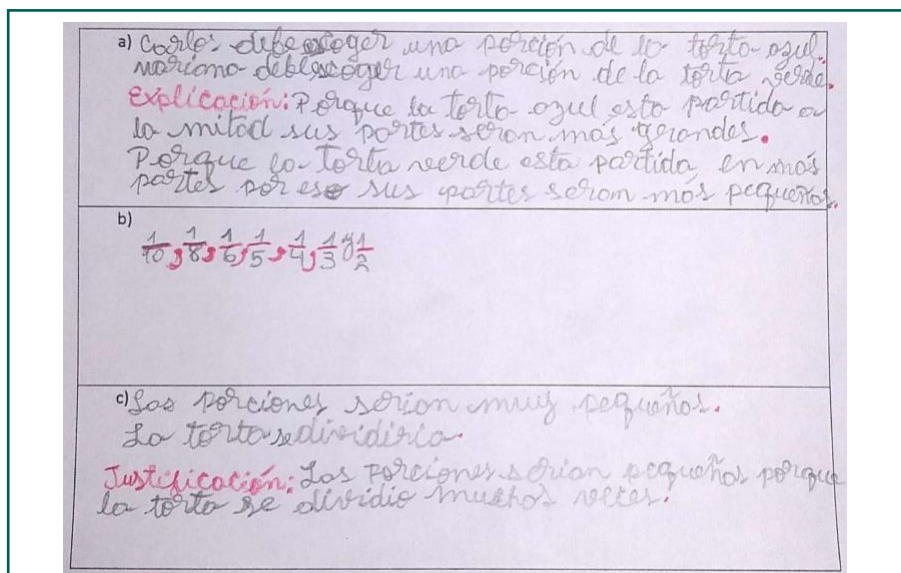 a) Carlos debe escoger una porción de la torta azul.
mariana debe escoger una porción de la torta verde.
Explicación: Porque la torta azul esta partida a
la mitad sus partes seran más grandes.
Porque la torta verde esta partida en más
partes por eso sus partes seran más pequeñas.
b)
1/10, 1/8, 1/6, 1/5, 1/4, 1/3 y 1/2
c) Las porciones serian muy pequeñas.
La torta se dividiria.
Justificación: Las porciones serian pequeñas porque
la torta se dividio muchas veces.